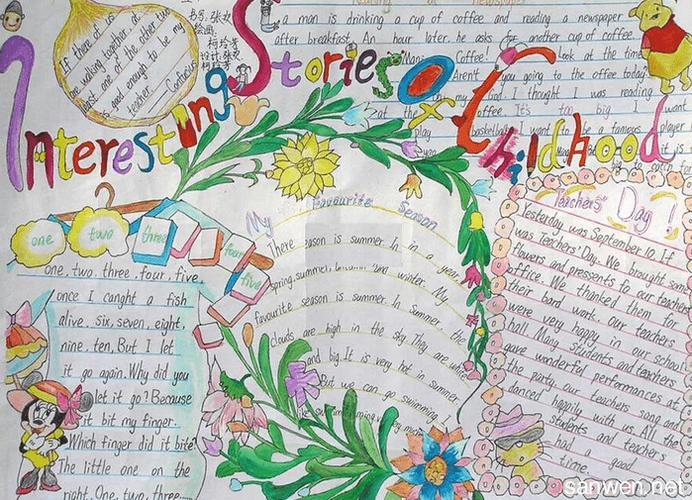 Interesting Stories of Childhood
If there at
are walking together at
least one of the other two
is good enough to be my
teacher —— Confucius
Reading a Newspaper
a man is drinking a cup of coffee and reading a newspaper
after breakfast. An hour later. he asks for another cup of coffee.
Coffee! Look at the time
Aren't you going to the offee today?
my God. I thought I was reading
at the offee. It's too big. I want
play basketball. I want to be a famous player
one
two
three
four
five
one. two. three. four. five.
once I canght a fish
alive. six, seven, eight,
nine. ten. But I let
it go again. Why did you
let it go? Because
it bit my finger.
Which finger did it bite?
The little one on the
right. One, two, three....
My Favourite Season
There season is summer In in a year,
spring, summer, and winter. My
favourite season is summer. In Summer, the
clouds are high in the sky. They are white
and big. It is very hot in summer.
But we can go swimming.
Teachers' Day!
Yesterday was September 10. It
was Teachers' Day. We brought some
flowers and pressents to our teachers'
office. We thanked them for
their bard work. Our teachers
were very happy in our school
hall. Many students and teachers
gave wonderful performances at
the party. our teachers sang and
danced happily with us. All the
students and teachers
had good
time.
sanwen.net